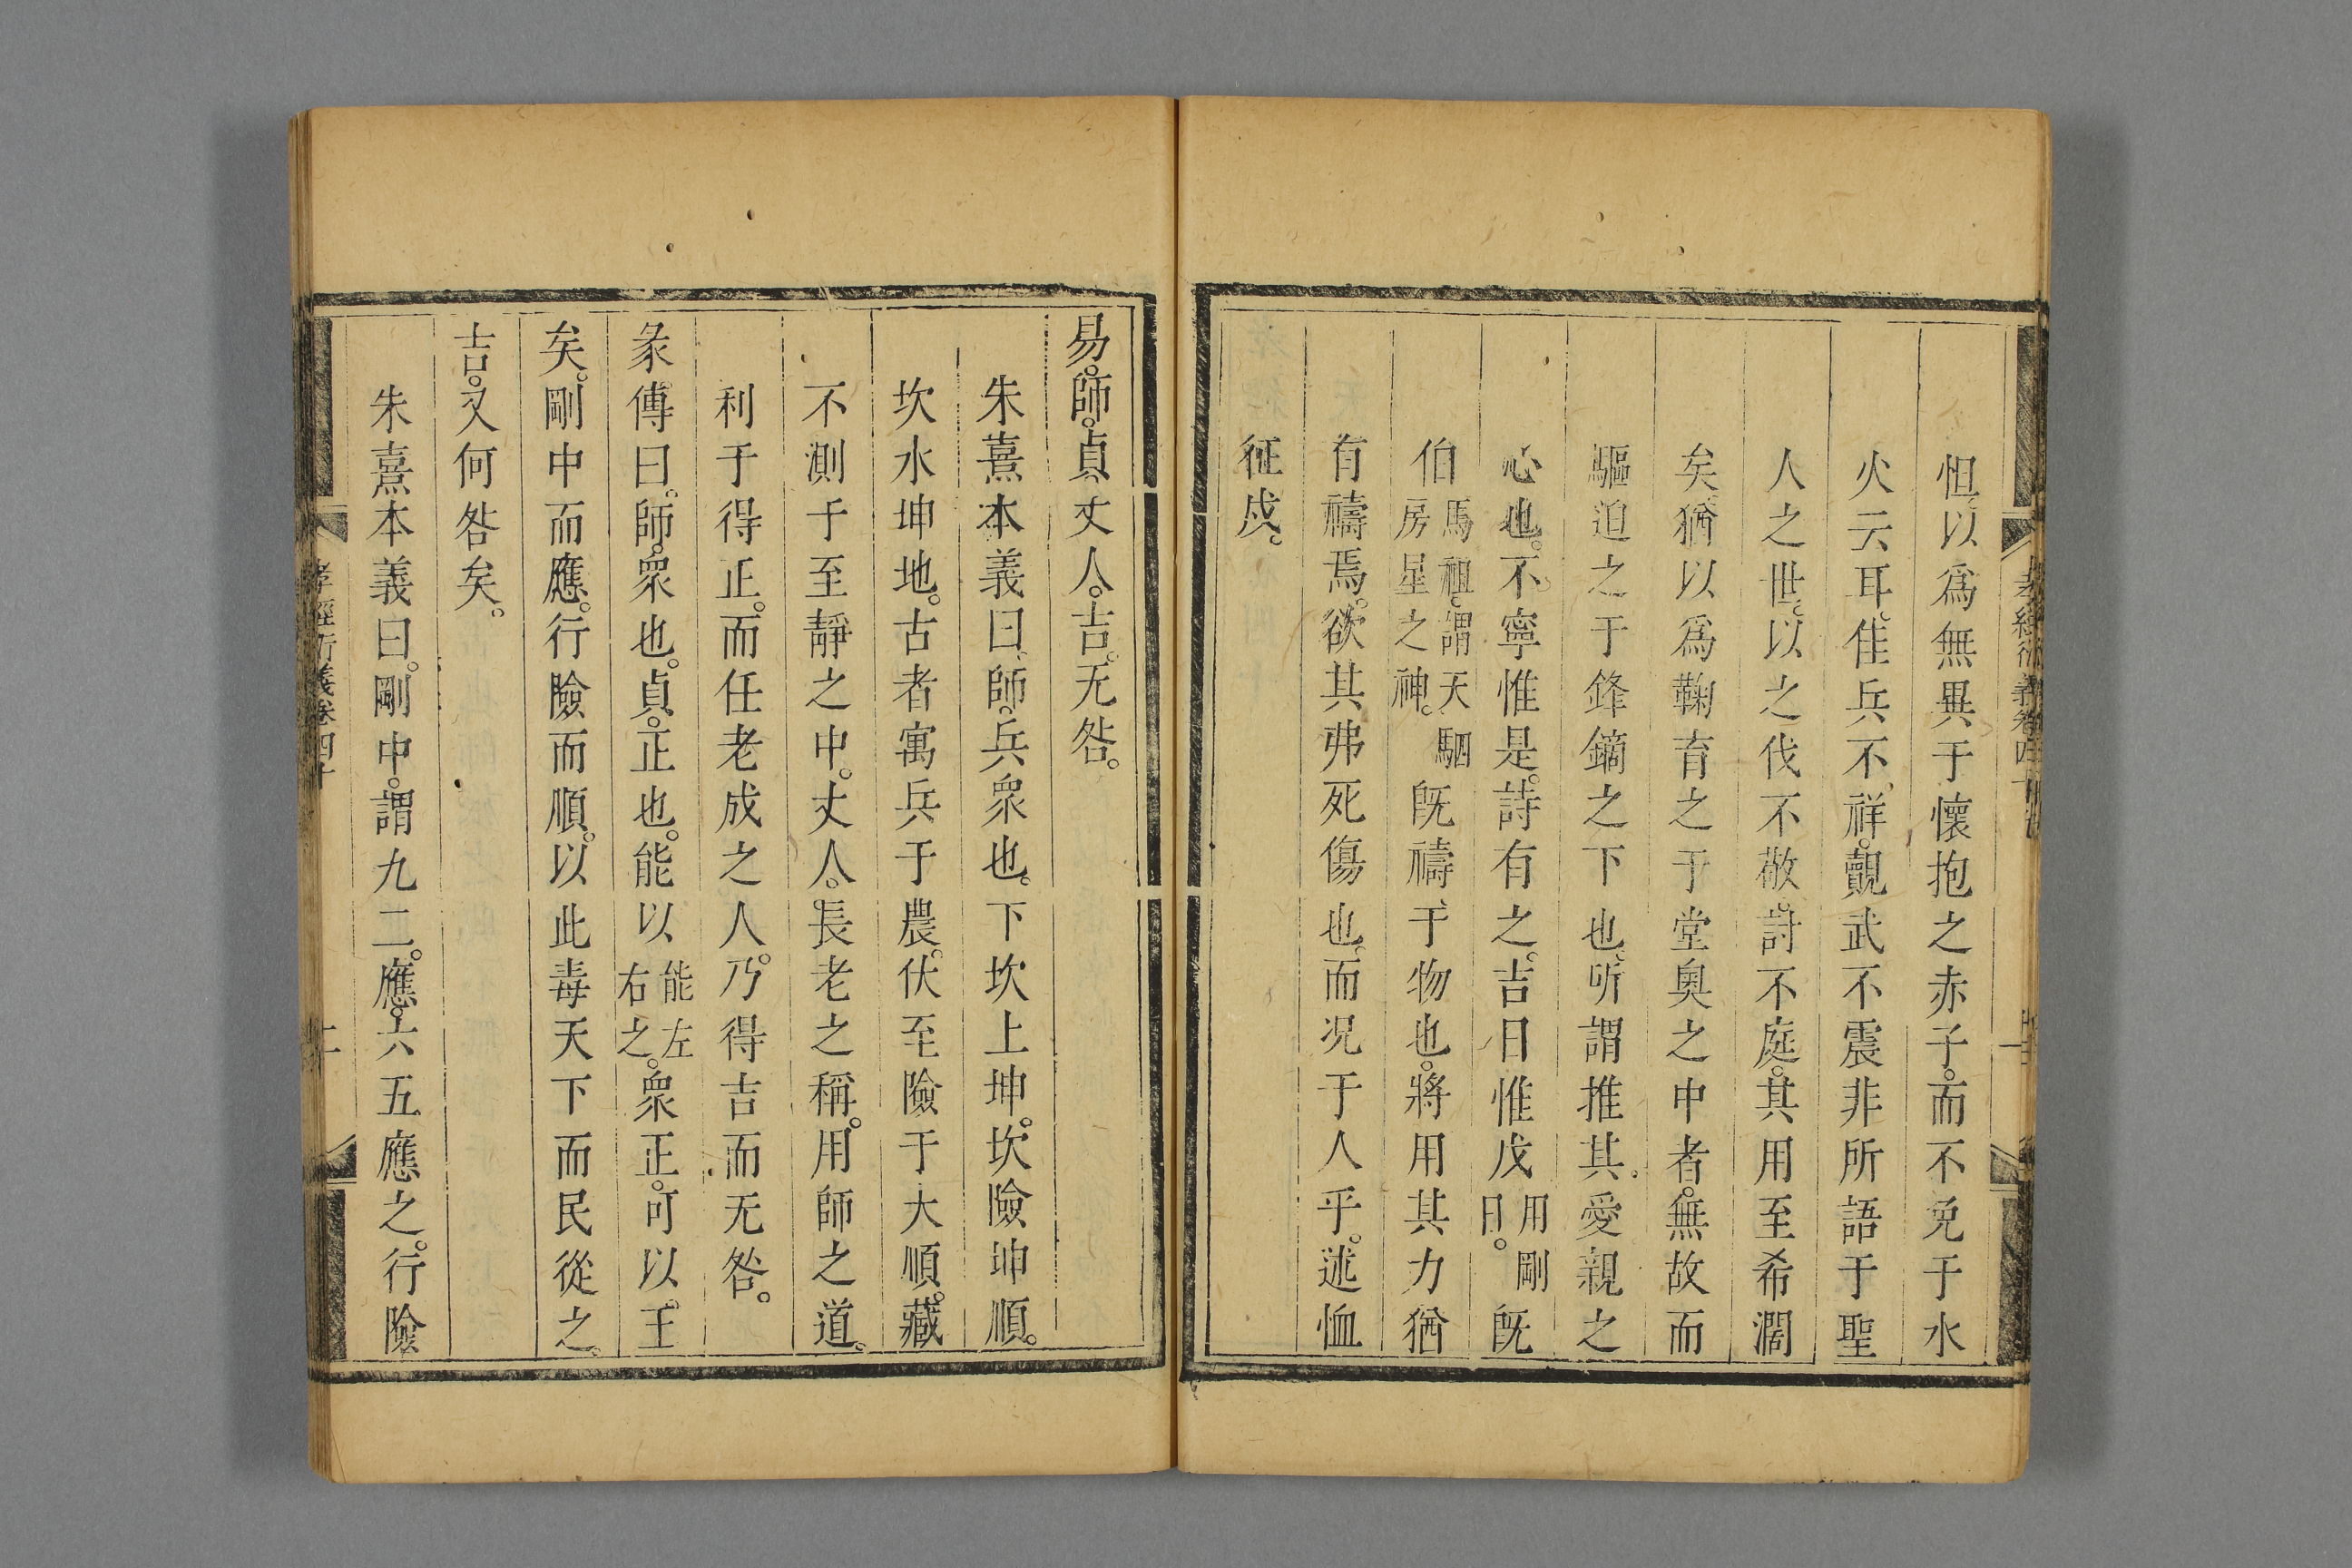 怛以爲無異于懷抱之赤子。而不免于水
火云耳。佳兵不祥。覿武不震非所語于聖
人之世。以之伐不敬。討不庭。其用至希濶
矣。猶以爲鞠育之于堂奥之中者。無故而
驅迫之于鋒鏑之下也。所謂推其愛親之
心也。不寧惟是。詩有之。吉日惟戊用剛日。旣
伯馬祖。謂天駟房星之神。旣禱于物也。將用其力猶
有禱焉。欲其弗死傷也。而况于人乎。述恤
征戍。
易。師。貞丈人。吉。无咎。
朱熹本義曰。師。兵衆也。下坎上坤。坎險坤順。
坎水坤地。古者寓兵于農。伏至險于大順。藏
不測于至靜之中。丈人。長老之稱。用師之道。
利于得正。而任老成之人。乃得吉而无咎。
彖傳曰。師。衆也。貞。正也。能以能左右之。衆正。可以王
矣。剛中而應。行險而順。以此毒天下而民從之。
吉。又何咎矣。
朱熹本義曰。剛中。謂九二。應。六五應之。行險
孝經衍義卷四十